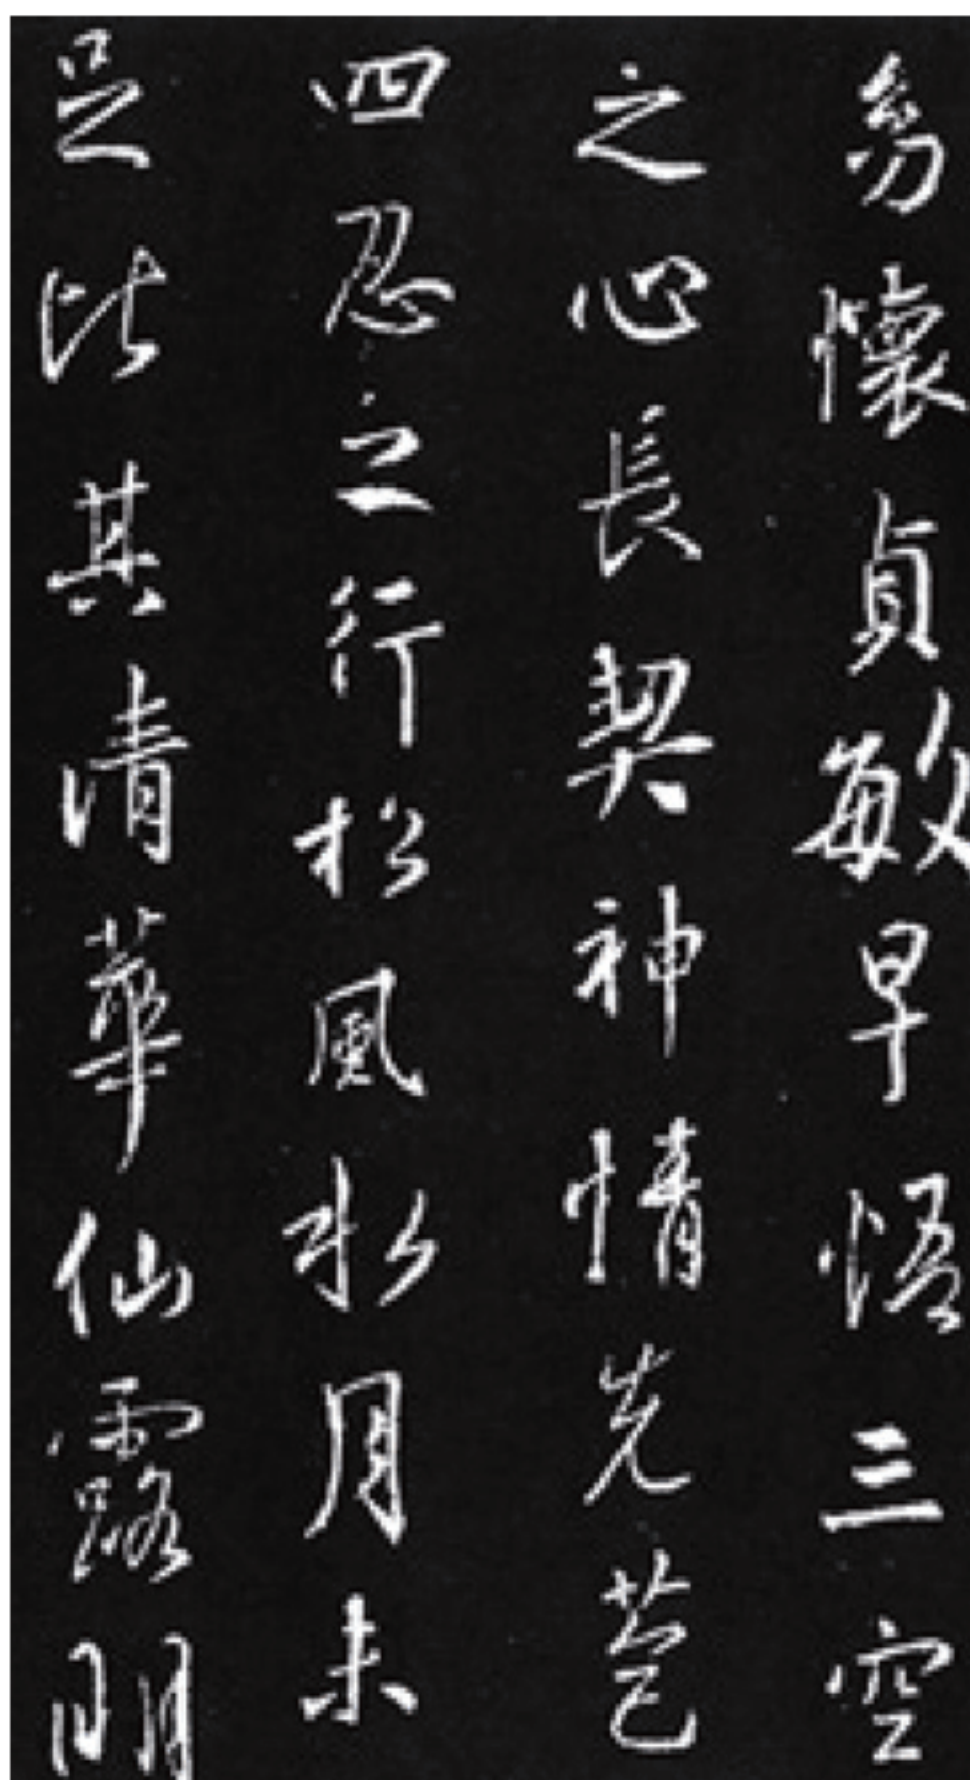 幼懷貞敏早悟三空
之心長契神情先苞
四忍之行松風水月未
足比其清華仙露明